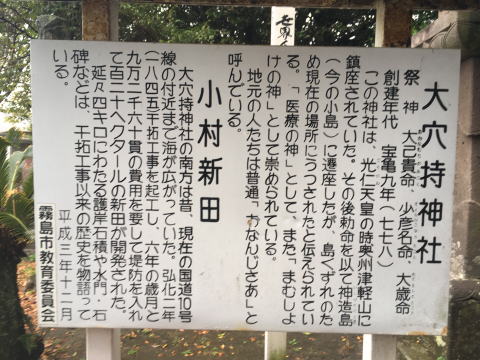 大穴持神社
祭神　大己貴命、少彦名命、大歳命
創建年代　宝亀九年（七七八）
この神社は、光仁天皇の時奥州津軽山に
鎮座されていた。その後勅命を以て神造島
（今の小島）に遷座したが、島くずれのた
め現在の場所にうつされたと伝えられてい
る。「医療の神」として、また、「まむしよ
けの神」として崇められている。
地元の人たちは普通「おなんじさあ」と
呼んでいる。
小村新田
大穴持神社の南方は昔、現在の国道10号
線の付近まで海が広がっていた。弘化二年
（一八四五）干拓工事を起工し、六年の歳月と
九万二千六十貫の費用を要して堤防を入れ
て百三十ヘクタールの新田が開発された。
延々四キロにわたる護岸石積や水門・石
碑などは、干拓工事以来の歴史を物語って
いる。
平成三年十二月
霧島市教育委員会